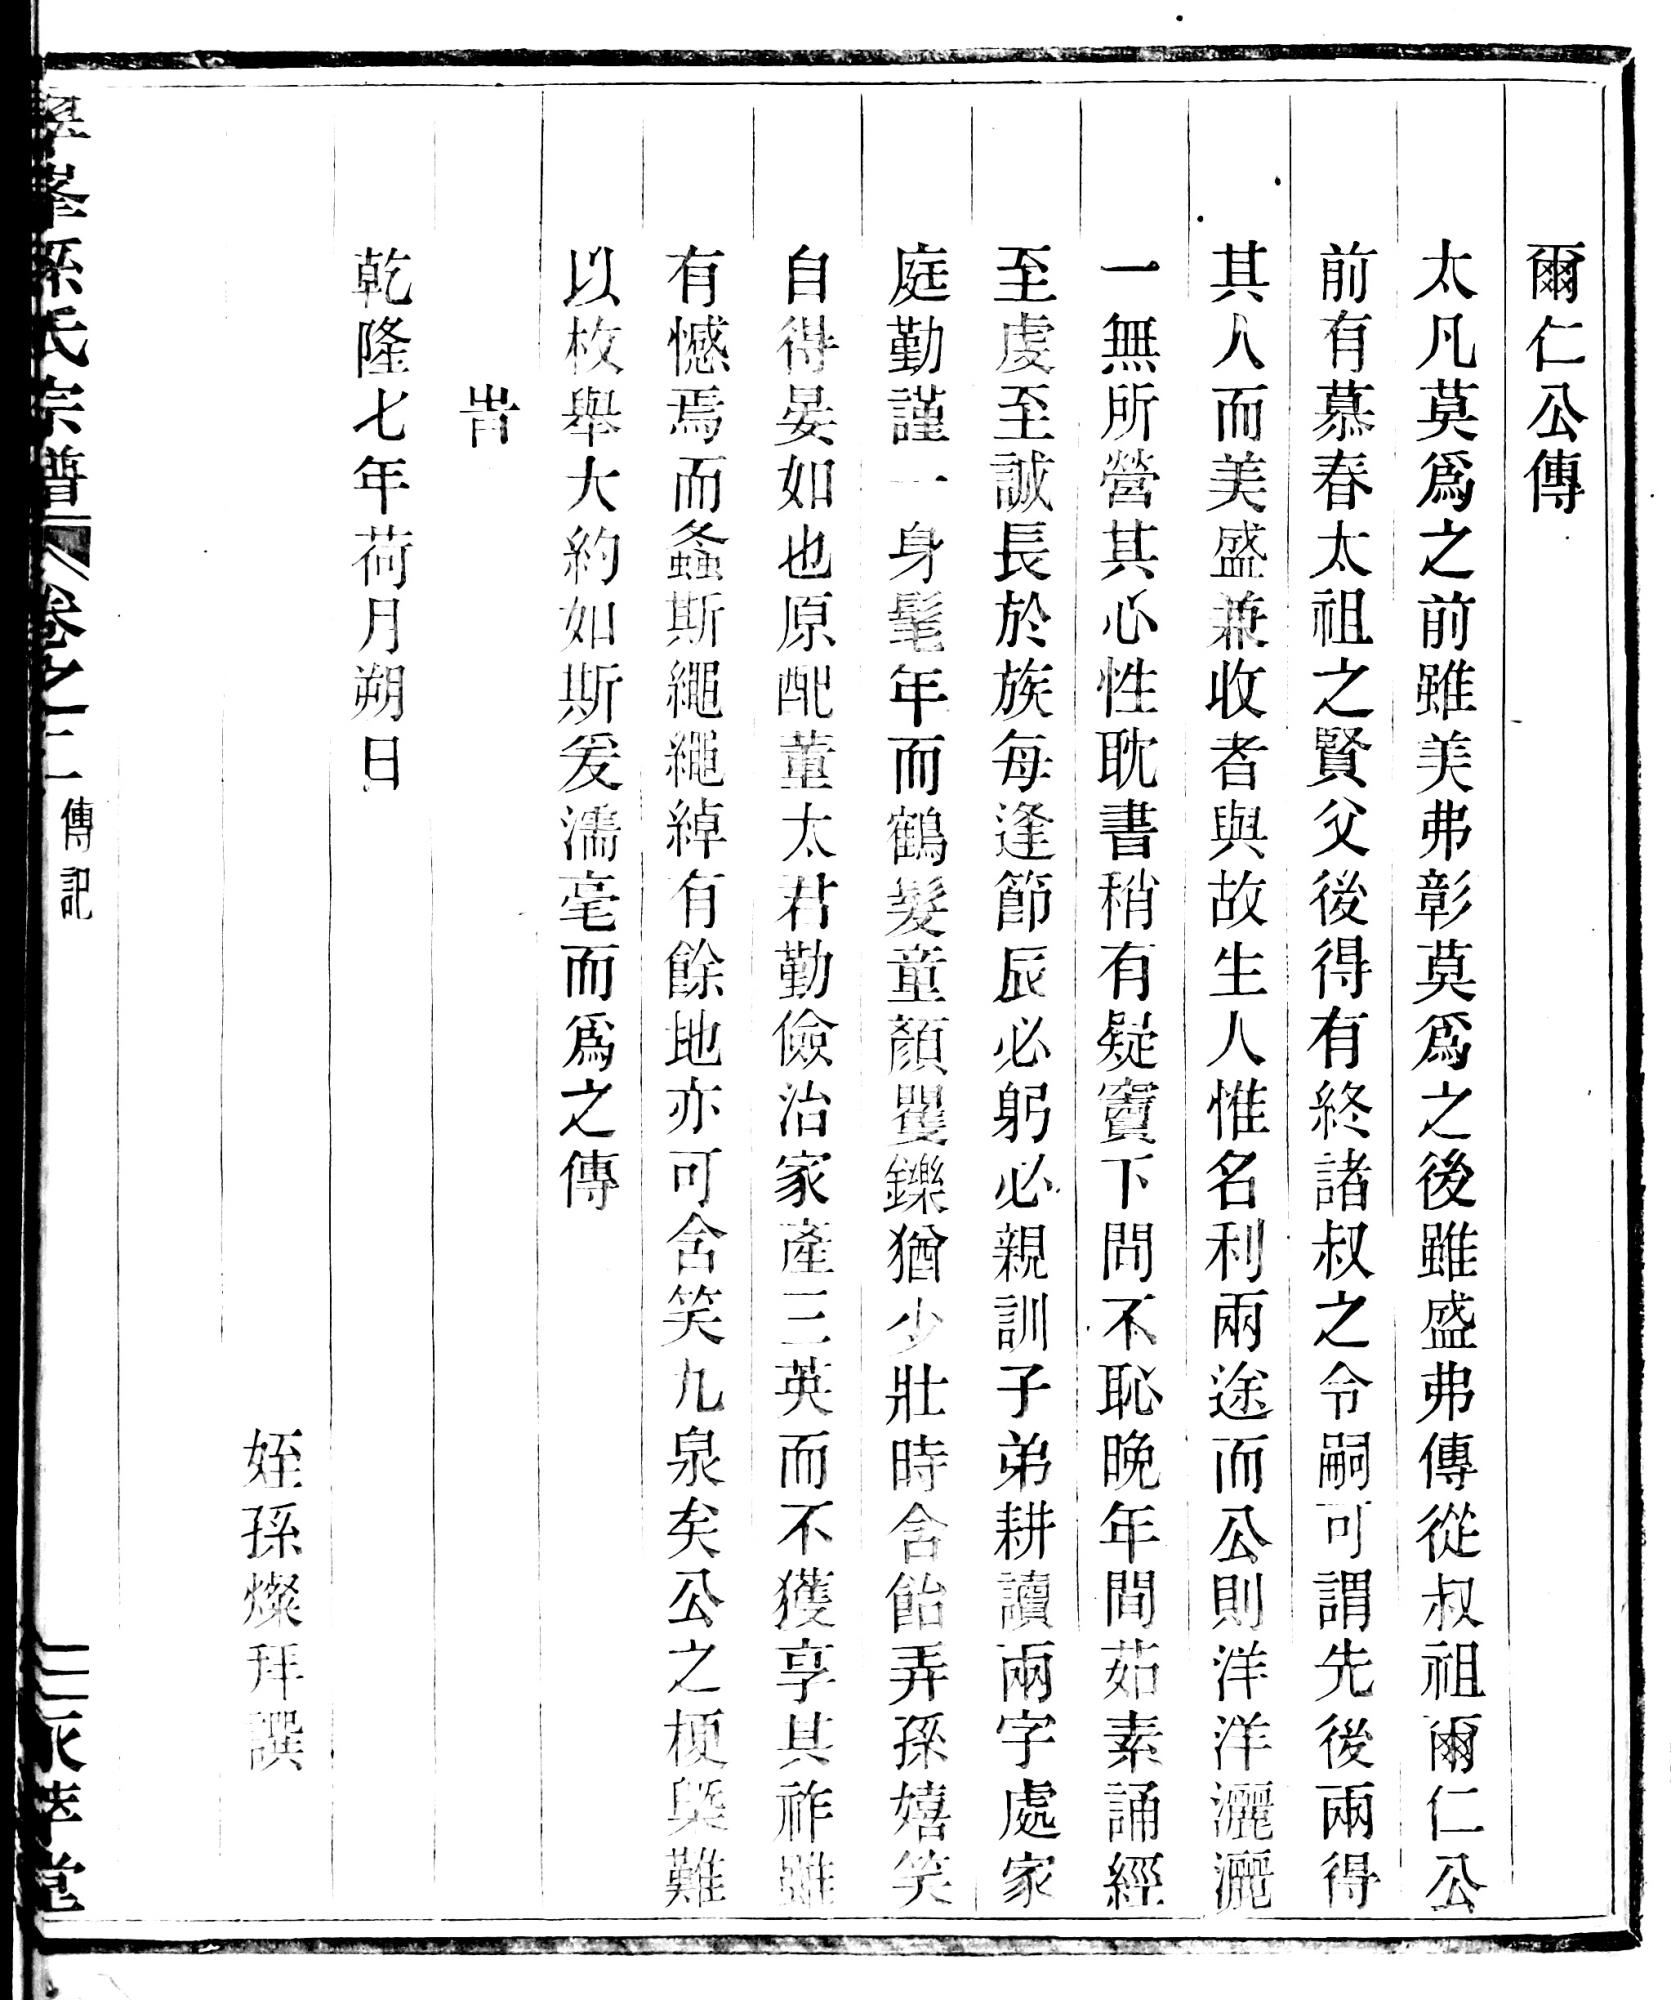 爾仁公傳
太凡莫爲之前雖美弗彰莫爲之後雖盛弗傳從叔祖爾仁公
前有慕春太祖之賢父後得有終諸叔之令嗣可謂先後兩得
其人而美盛兼收者與故生人惟名利兩途而公則洋洋灑灑
一無所營其心性耽書稍有疑竇下問不恥晚年間茹素誦經
至虔至誠長於族每逢節辰必躬必親訓子弟耕讀兩字處家
庭勤謹一身髦年而鶴髮童顏矍鑠猶少壯時含飴弄孫嬉笑
自得晏如也原配董太君勤儉治家產三英而不獲享其祚雖
有憾焉而螽斯繩繩綽有餘地亦可含笑九泉矣公之梗槩難
以枚舉大約如斯爰濡毫而爲之傳
旹
乾隆七年荷月朔日
姪孫燦拜譔
峯孫氏宗譜 卷之二 傳記 堂